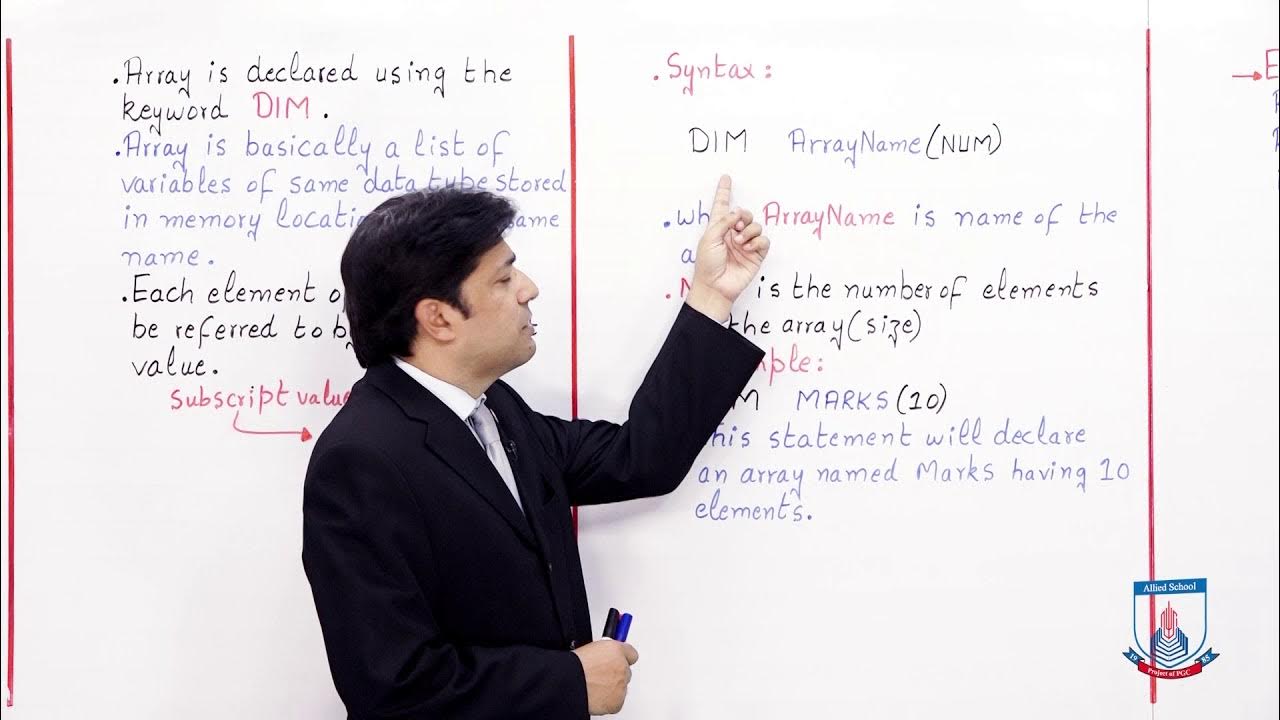 .Array is declared using the
keyword DIM.
.Array is basically a list of
variables of same data type stored
in memory same
name.
.Each element
be referred to
value.
Subscript value
.Syntax:
DIM ArrayName(NUM)
. ArrayName is name of the
. is the number of elements
the array(size)
DIM MARKS(10)
This statement will declare
an array named Marks having 10
elements.
Allied School
19 85
Project of PGC